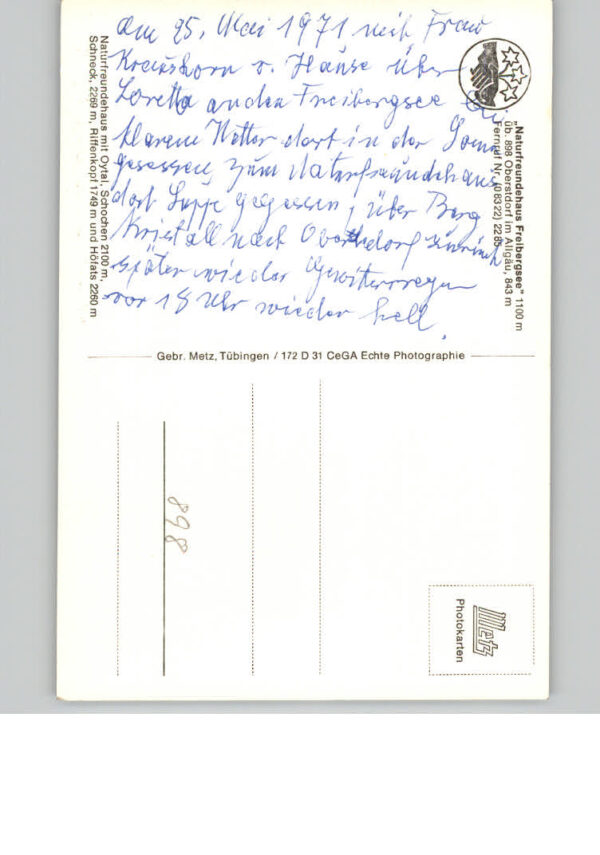 am 25. Mai 1971 mit Frau
v. Hause über
Loretto an den Freibergsee bei
klarem Wetter dort in der Sonne
gesessen, zum Naturfreundehaus
dort Suppe gegessen, über Berg
Kristall nach Oberstdorf zurück
später wieder Gewitterregen
vor 18 Uhr wieder hell.
„Naturfreundehaus Freibergsee" 1100 m
üb. 898 Oberstdorf im Allgäu, 843 m
Fernruf Nr. (08322) 2285
Naturfreundehaus mit Oytal, Schochen 2100 m,
Schneck, 2269 m, Riffenkopf 1749 m und Höfats 2260 m
Gebr. Metz, Tübingen / 172 D 31 CeGA Echte Photographie
898
Metz
Photokarten